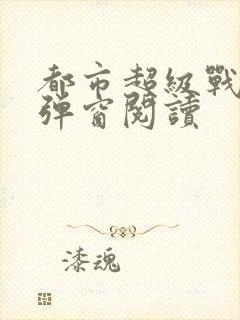 都市超級戰
彈窗閱讀
漆魂